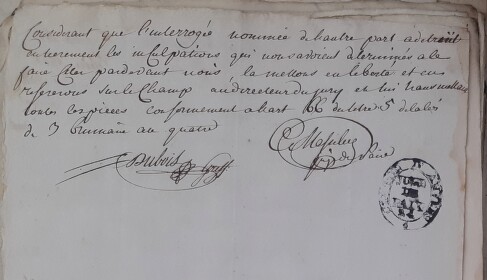 Considerant que l'interrogée nommée de l'autre part a detruit
entierement les inculpations qui nous avoient determinés a la
faire citer pardevant nous la mettons en liberté et en
refererons sur le champ au directeur du jury et lui transmettons
toutes les pieces conformement a l'art 66 du titre 5 de la loi
de 3 brumaire an quatre
Dubois greff
juge de Paix